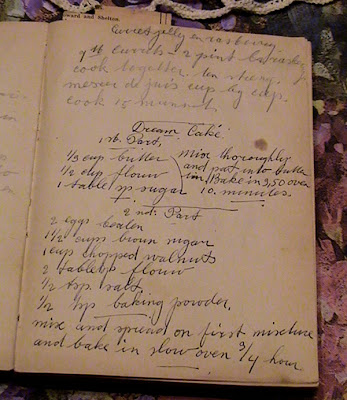 ward and Shelton.
Currest jelly en rasberry
9 lb currets - 2 pint
cook together. ten
mesier de juis cup by cup.
cook 15 munnit.
Dream Cake
1st. Part,
1/3 cup butter
1/2 cup flouw
1 table sp sugar
mix thoroughly
and put into butter
tin. Bake in 350 oven
10. minutes.
2 nd. Part
2 eggs beaten
1 1/2 cups broun sugar
1 cup chopped walnuts
2 tablesp flouw
1/2 tsp. salt
1/2 tsp baking powder,
mix and spriend on first mixture
and bake in slow oven 3/4 hour